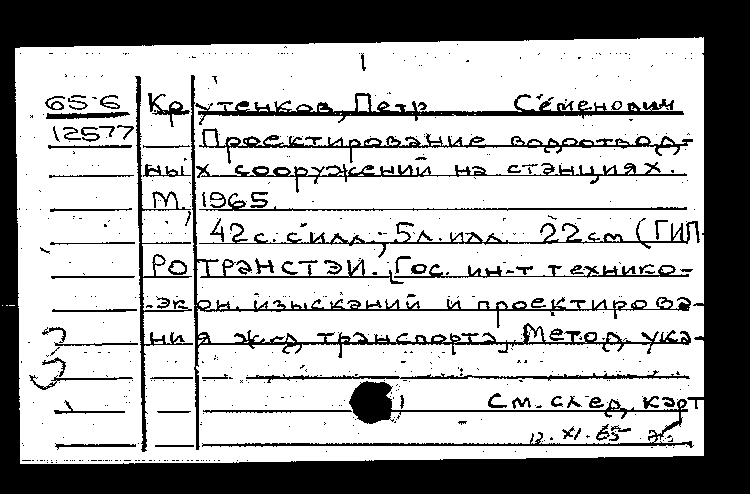 65-6 Крутенков, Петр Семенович
12577 Проектирование водоотвод-
ных сооружений на станциях.
М. 1965.
42 с. с илл.; 5 л. илл. 22 см (ГИП
РОТРАНСТЭИ. [Гос. ин-т технико-
-экон. изысканий и проектирова-
ния ж.д. транспорта]. Метод. ука-
3
См. след. карт
12.XI.65